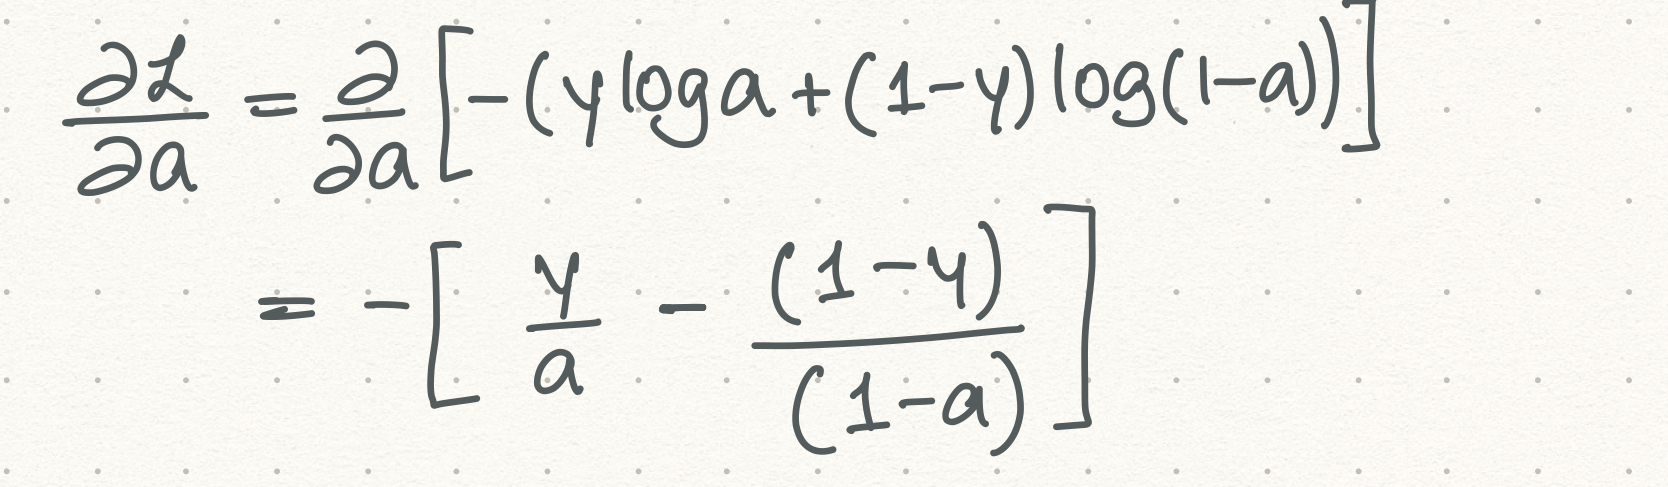 ∂ℒ/∂a = ∂/∂a [-(y log a + (1-y) log(1-a))]
= -[ y/a - (1-y)/(1-a) ]